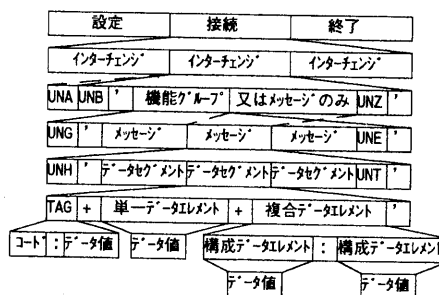 設定 接続 終了
インターチェンジ インターチェンジ インターチェンジ
UNA UNB ' 機能グループ 又はメッセージのみ UNZ '
UNG ' メッセージ メッセージ メッセージ UNE '
UNH ' データセグメント データセグメント データセグメント UNT '
TAG + 単一データエレメント + 複合データエレメント '
コード : データ値 データ値 構成データエレメント : 構成データエレメント
データ値 データ値